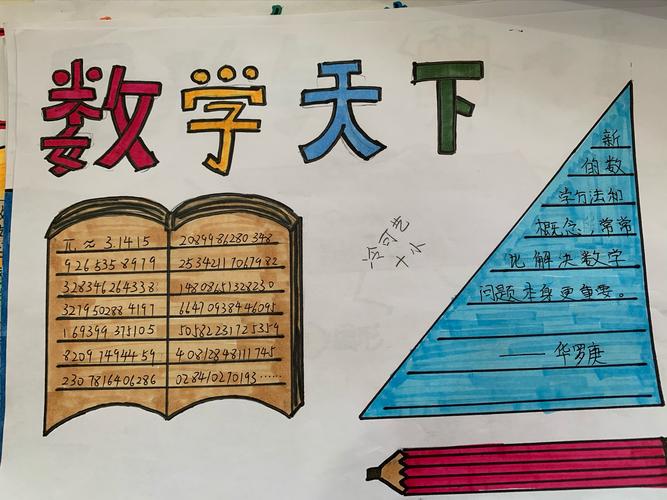 数学天下
π ≈ 3.1415
926535 8979
328346264338
32795028841 97
169399375105
8209 74944 59
230 7816406286
20899 86280 348
2534211 7067982
14808651328230
66470938446095
50582231725359
40812848111745
028410270193······
新
的数
学方法和
概念，常常
比解决数学
问题本身更重要。
—— 华罗庚